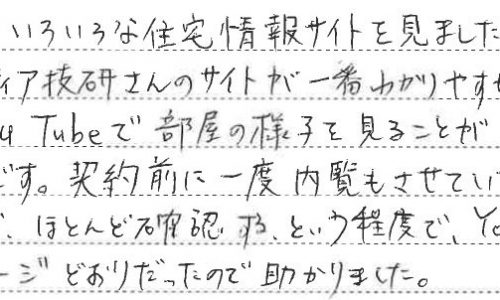 いろいろな住宅情報サイトを見ました
ィア技研さんのサイトが一番わかりやす
u Tubeで部屋の様子を見ることが
です。契約前に一度内覧もさせてい
、ほとんど確認する、という程度で、Yo
ージどおりだったので助かりました。